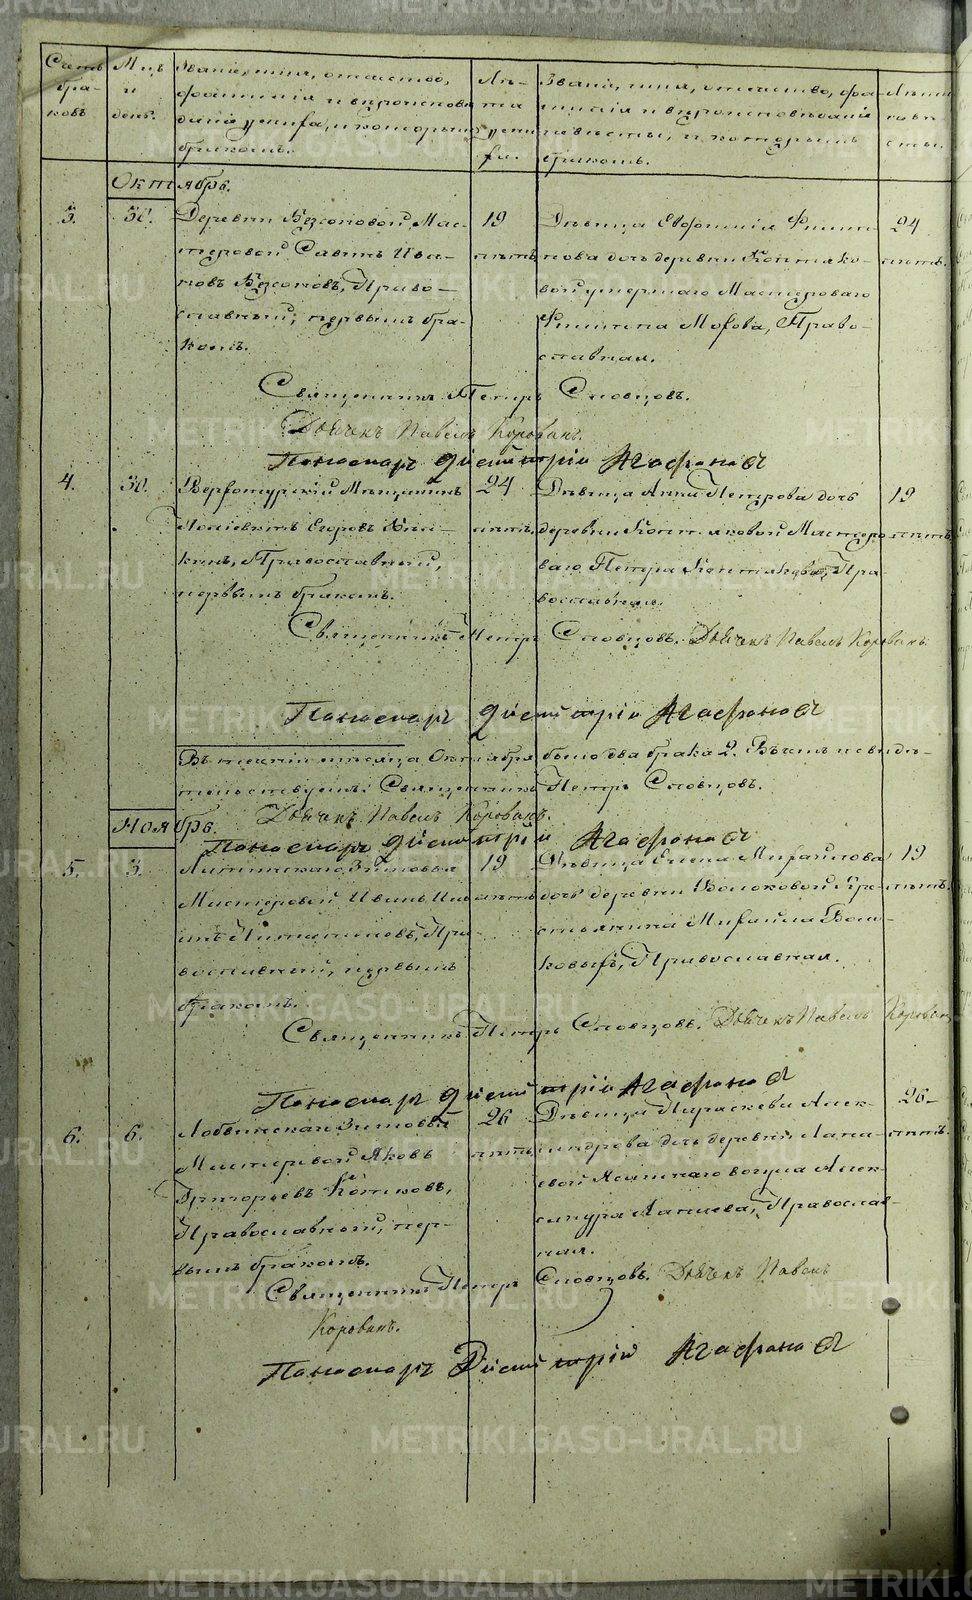 METRIKI.GASO-URAL.RU
Счетъ браковъ
Мѣц. и день.
Званіе, имя, отчество, фамилія и вѣроисповѣданіе жениха, и которымъ бракомъ.
Лѣта жениха.
Званіе, имя, отчество, фамилія и вѣроисповѣданіе невѣсты, и которымъ бракомъ.
Лѣта невѣсты.
Октябрь.
3.
30.
Деревни Безсоновой Мас-
теровой Савинъ Ива-
новъ Безсоновъ, Право-
славный, первымъ бра-
комъ.
19
лѣтъ
Дѣвица Евфимія Филип-
пова дочь деревни Коптяко-
вой умершаго Мастероваго
Филиппа Мохова, Право-
славная.
24
лѣтъ.
Священникъ Петръ Словцовъ.
Дьячекъ Павелъ Корованъ.
Пономарь Димитрій Агафоновъ
4.
30.
Верхотурскій Мѣщанинъ
Егоровъ
Православный,
первымъ бракомъ.
24
лѣтъ
Дѣвица Анна Петрова дочь
деревни Коптяковой Мастеро-
ваго Петра Коптякова, Пра-
вославная.
19
лѣтъ
Священникъ Петръ Словцовъ. Дьячекъ Павелъ Корованъ.
Пономарь Димитрій Агафоновъ
Въ теченіи мѣсяца Октября было два брака 2. Въ чемъ и свидѣ-
тельствуемъ: Священникъ Петръ Словцовъ.
Дьячекъ Павелъ Корованъ.
Пономарь Димитрій Агафоновъ
Ноябрь.
5.
3.
Зимовья
Мастеровой Иванъ
Пра-
вославный, первымъ
бракомъ.
19
лѣтъ
Дѣвица Елена Михайлова
дочь деревни Волоковой Кре-
стьянина Михаила Воло-
ковыхъ, Православная.
19
лѣтъ.
Священникъ Петръ Словцовъ. Дьячекъ Павелъ Корованъ
Пономарь Димитрій Агафоновъ
6.
6.
Лобвинскаго Зимовья
Мастеровой Яковъ
Григорьевъ Котковъ,
Православный, пер-
вымъ бракомъ.
26
лѣтъ
Дѣвица Параскева Алек-
сандрова дочь деревни Лапа-
евой Ясашнаго вогула Алек-
сандра Лапаева, Православ-
ная.
26
лѣтъ.
Священникъ Петръ Словцовъ. Дьячекъ Павелъ
Корованъ.
Пономарь Димитрій Агафоновъ